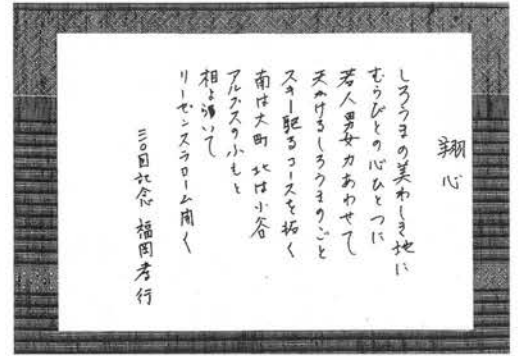 翔心
しろうまの美わしき地に
むらびとの心ひとつに
若人男女力あわせて
天かけるしろうまのごと
スキー駆るコースを拓く
南は大町 北は小谷
アルプスの小もと
相よ
リーゼンスラローム開く
三〇回記念 福岡孝行